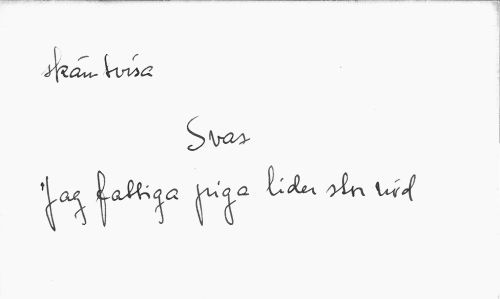 skämtvisa
Svar
"Jag fattiga piga lider stor nöd